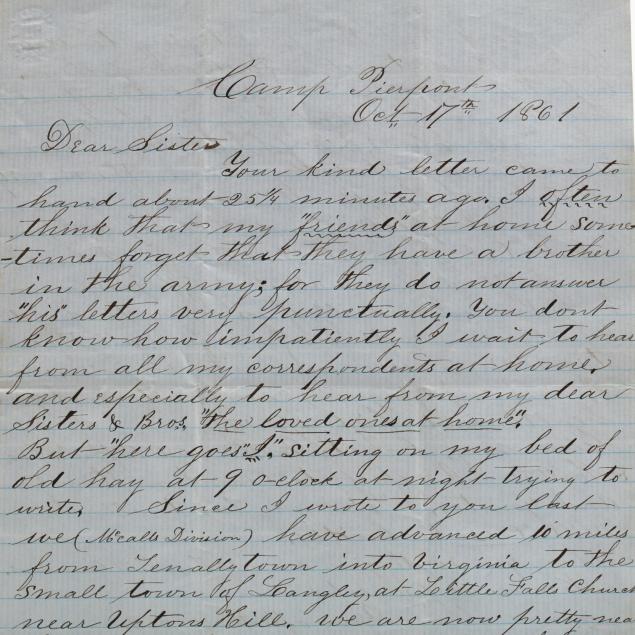 Camp Pierpont
Oct 17th 1861
Dear Sister
Your kind letter came to
hand about 25 1/4 minutes ago. I often
think that my "friends" at home some-
-times forget that they have a brother
in the army; for they do not answer
"his" letters very punctually. You dont
know how impatiently I wait to hear
from all my correspondents at home.
and especially to hear from my dear
Sisters & Bros. "the loved ones at home".
But "here goes" "I." sitting on my bed of
old hay at 9 o-clock at night trying to
write. Since I wrote to you last
we (McCalls Division) have advanced 10 miles
from Tenallytown into Virginia to the
small town of Langley, at Little Falls Church
near Uptons Hill. we are now pretty near